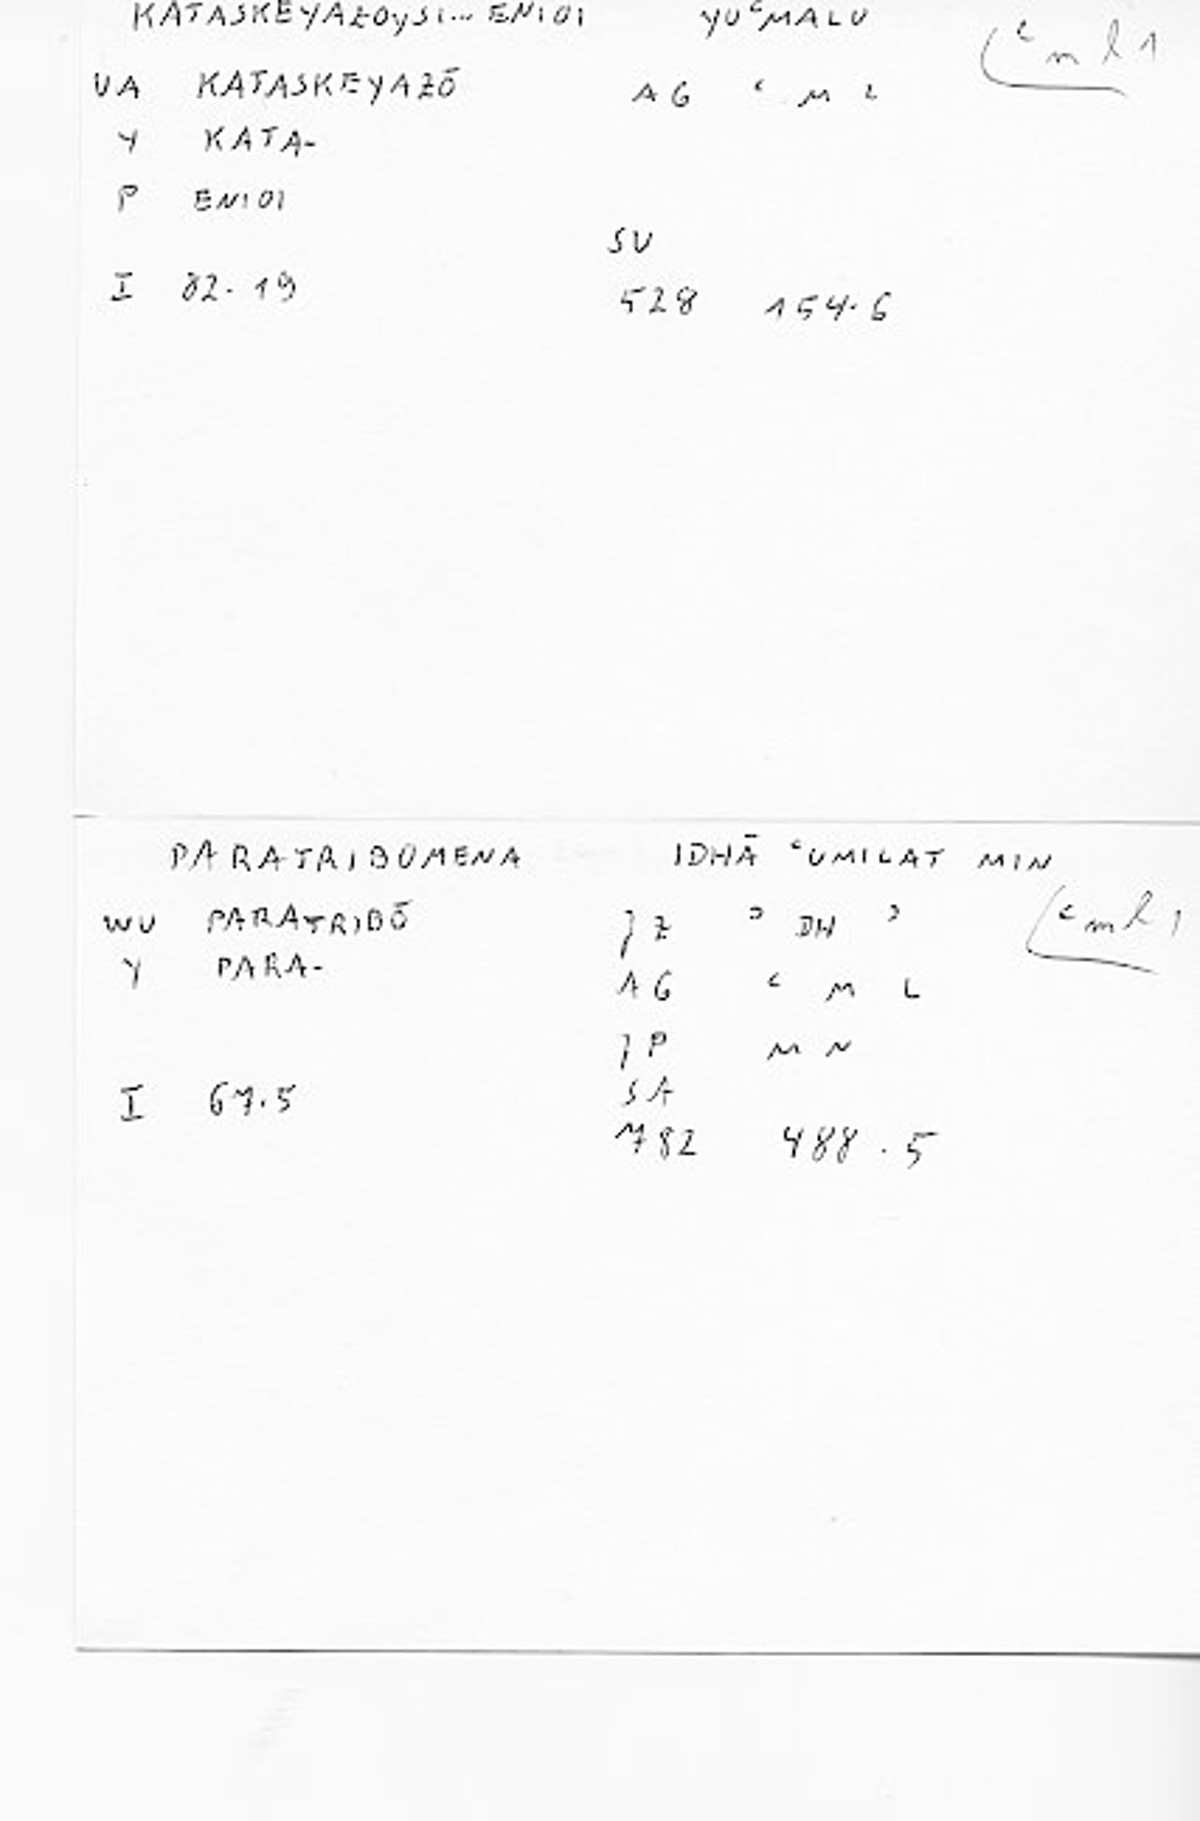 KATASKEYAZOYSI... ENIOI YUʿMALU
ʿml 1
VA KATASKEYAZŌ AG ʿ M L
Y KATA-
P ENIOI
SV
I 82.19
528 154.6
PARATRIBOMENA IDHĀ ʿUMILAT MIN
ʿml 1
WU PARATRIBŌ JZ ʾ DH ʾ
Y PARA- AG ʿ M L
JP M N
I 67.5 SA
782 488.5